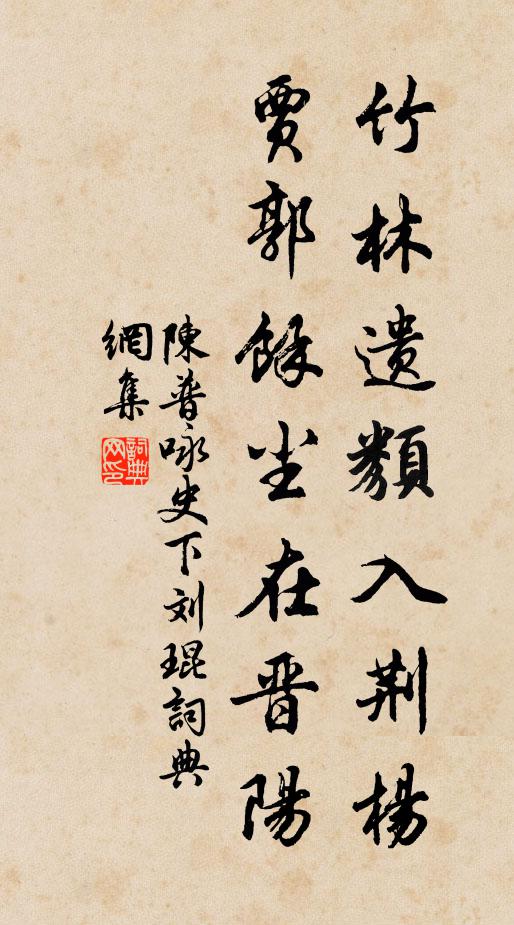 竹林遗類入荆楊
賈郭餘尘在晋陽
陳普咏史下刘琨詞典
網集
詞典网印